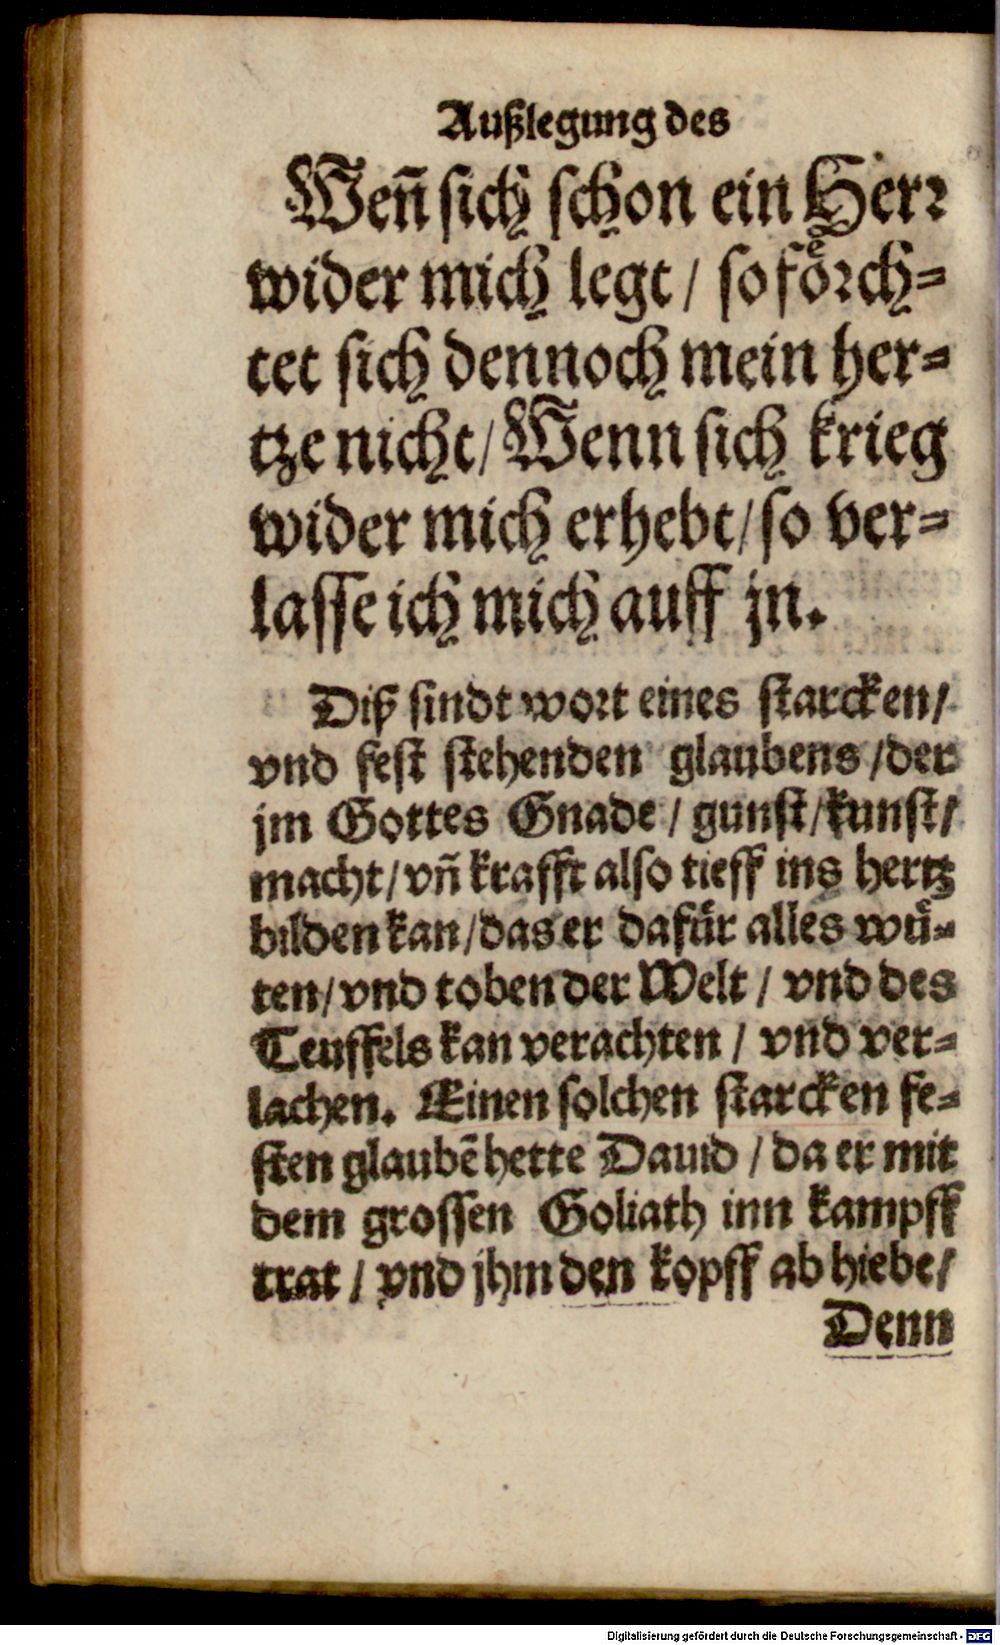 Außlegung des
Weñ sich schon ein Herr
wider mich legt / so foͤrch-
tet sich dennoch mein her-
tze nicht / Wenn sich krieg
wider mich erhebt / so ver-
lasse ich mich auff jn.
Diß sindt wort eines starcken /
vnd fest stehenden glaubens / der
jm Gottes Gnade / gunst / kunst /
macht / vñ krafft also tieff ins hertz
bilden kan / das er dafuͤr alles wuͤ-
ten / vnd toben der Welt / vnd des
Teuffels kan verachten / vnd ver-
lachen. Einen solchen starcken fe-
sten glaubẽ hette Dauid / da er mit
dem grossen Goliath inn kampff
trat / vnd jhm den kopff ab hiebe /
Denn
Digitalisierung gefördert durch die Deutsche Forschungsgemeinschaft - DFG